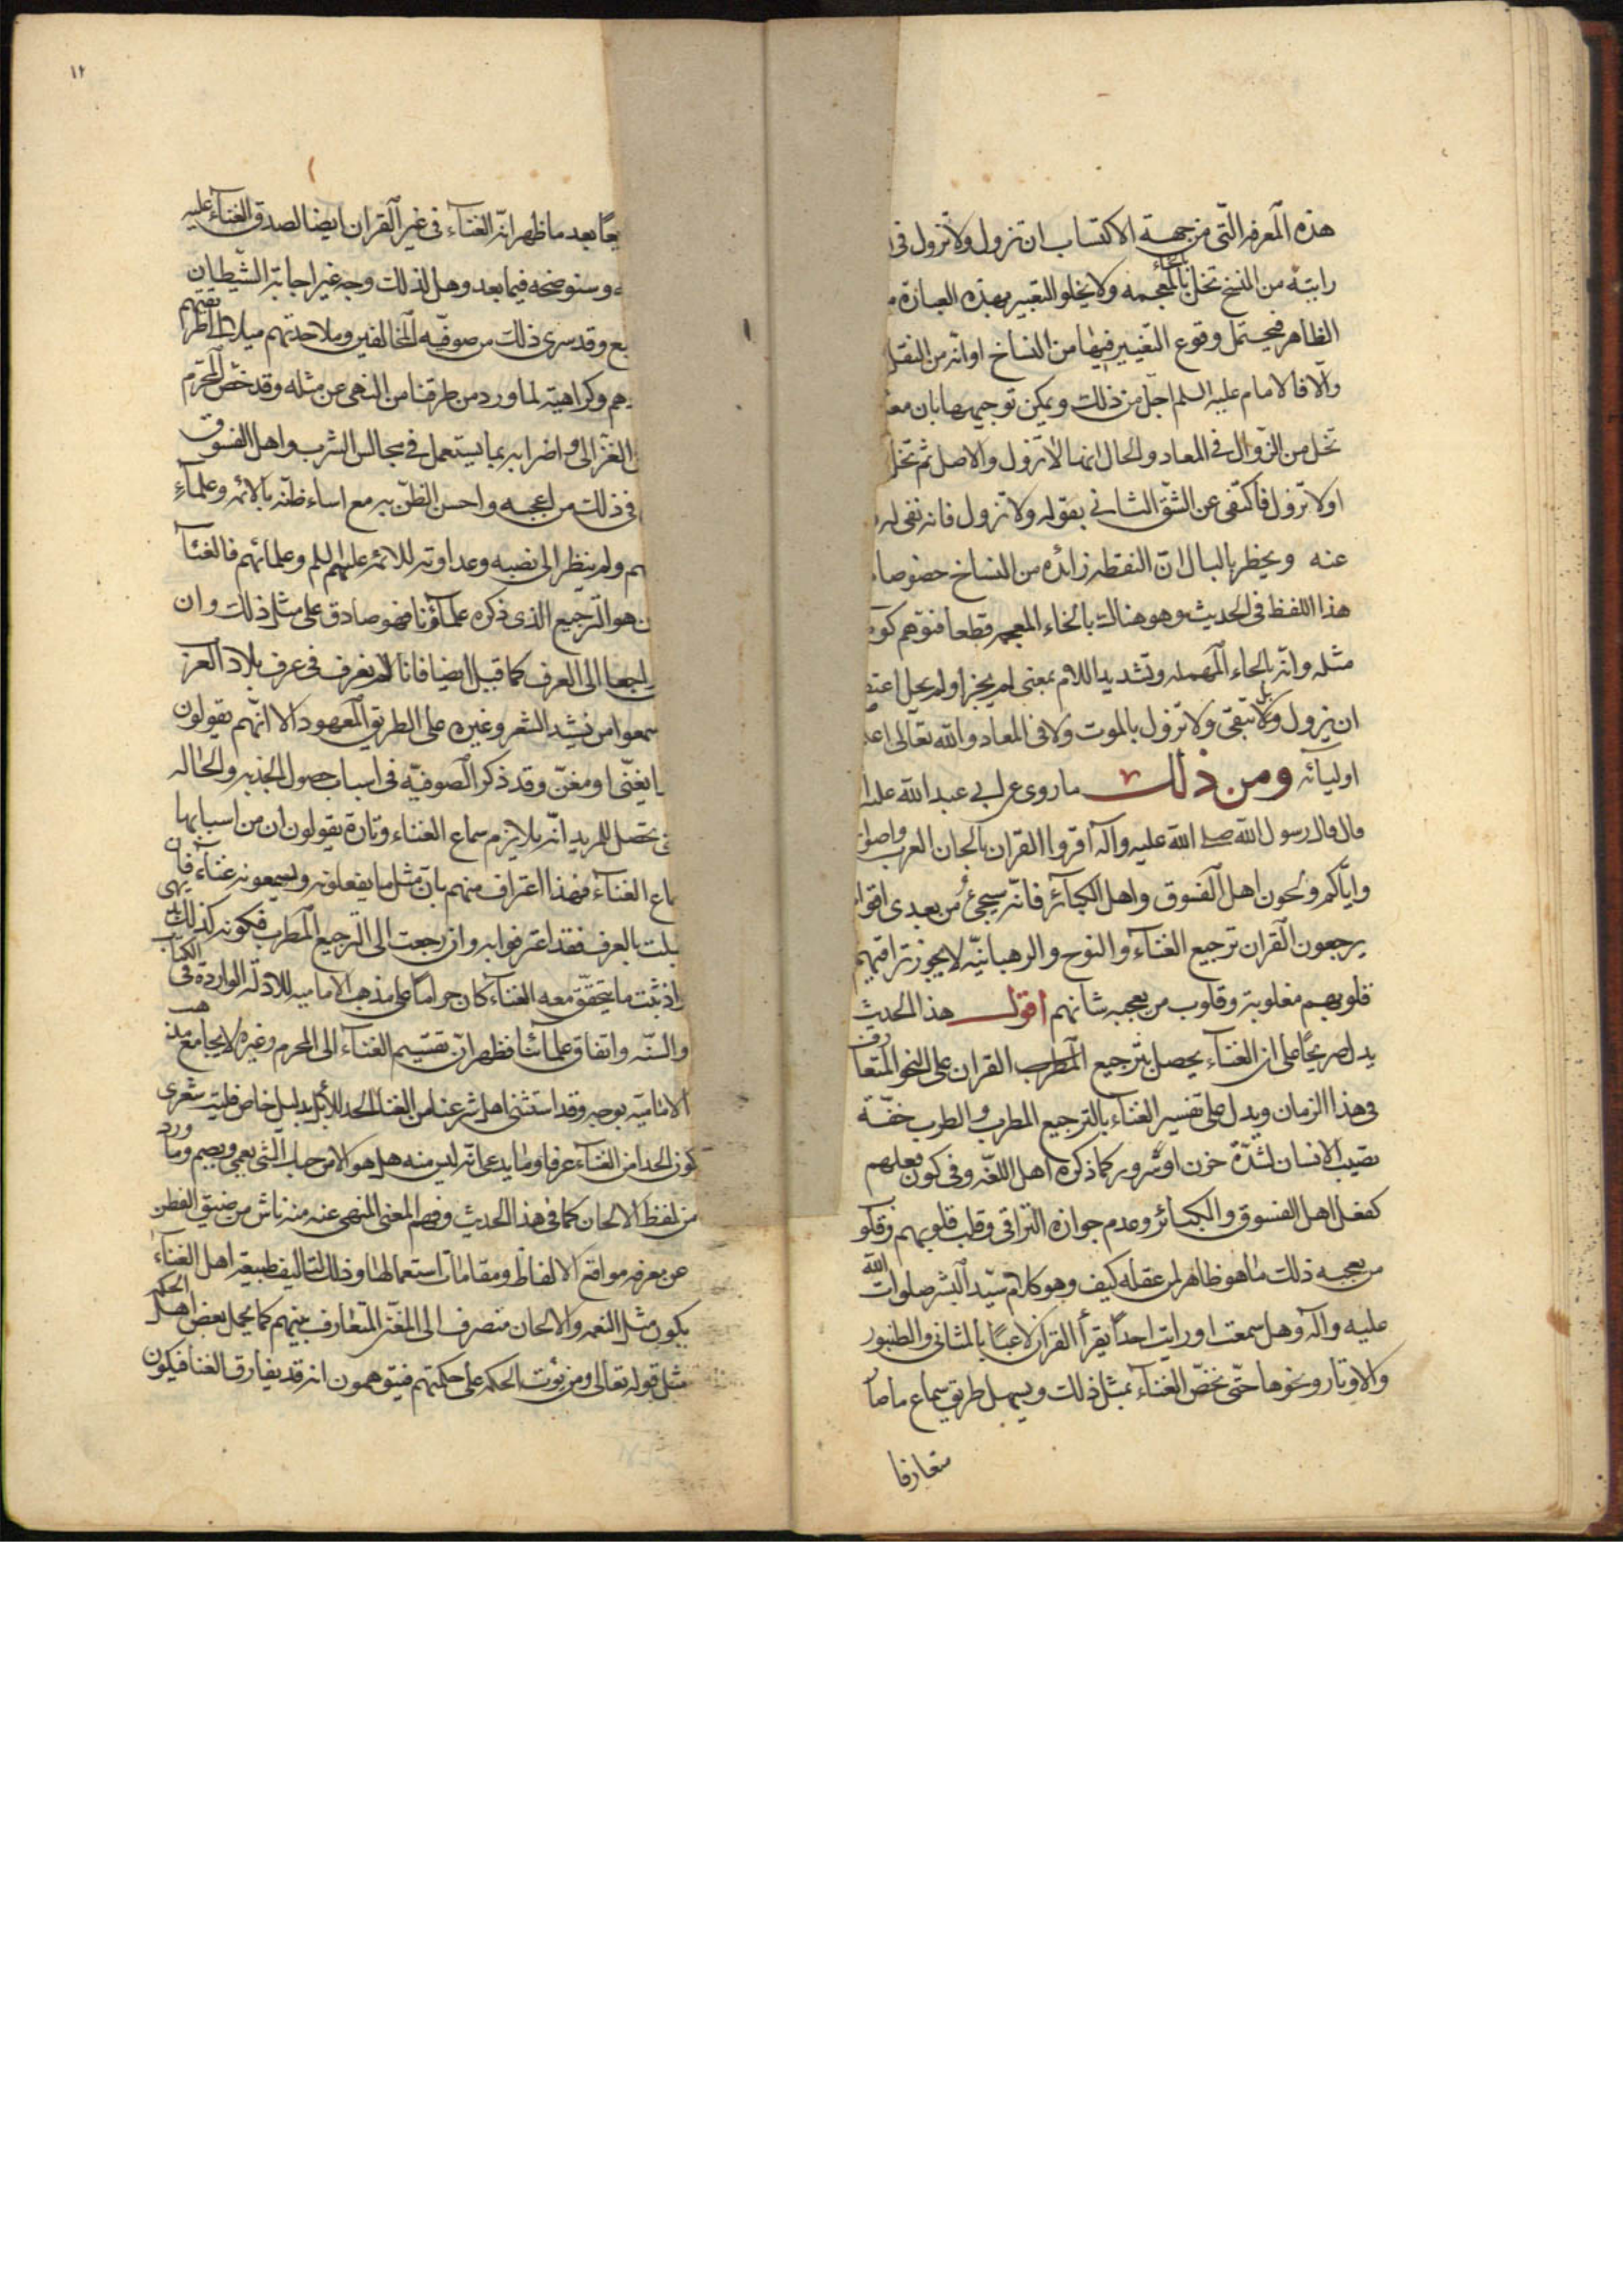 هذه المعرفه التى من جهة الاكتساب ان تزول ولا تزول فى
رايته من النسخ تخل بالخاء المعجمه ولا يخلو التعبير بهذه العبارة
الظاهر فيحتمل وقوع التغيير فيها من النساخ او انه من النقل
والا فالامام عليه السلم اجل من ذلك ويمكن توجيهها بان
تخل من الزوال فى المعاد والحال انها لا تزول والاصل ثم تخل
او لا تزول فاكتفى عن الشق الثانى بقوله ولا تزول فانه نفى له
عنه ويخطر بالبال ان النقطه زائده من النساخ خصوصا
هذا اللفظ فى الحديث وهو هناك بالخاء المعجمه قطعا فتوهم
مثله وانه بالحاء المهمله وتشديد اللام بمعنى لم يجز او لم يحل
ان يزول ولا بل تبقى ولا تزول بالموت ولا فى المعاد والله تعالى
اوليائه ومن ذلك ما روى عن ابى عبد الله
قال قال رسول الله صلى الله عليه وآله اقروا القران بالحان العرب واصو
واياكم ولحون اهل الفسوق واهل الكبآئر فانه سيجئ من بعدى اقوا
يرجعون القران ترجيع الغنآء والنوح والرهبانيه لا يجوز تراقيهم
قلوبهم مقلوبة وقلوب من يعجبه شانهم اقول هذا الحديث
يدل صريحا على ان الغنآء يحصل بترجيع المطرب القران على النحو المتعارف
فى هذا الزمان ويدل على تفسير الغنآء بالترجيع المطرب والطرب خفة
تصيب الانسان لشدة حزن او سرور كما ذكره اهل اللغه وفى كون فعلهم
كفعل اهل الفسوق والكبائر وعدم جوازه التراقى وقلب قلوبهم وقلوب
من يعجبه ذلك ما هو ظاهر لمن عقله كيف وهو كلام سيد البشر صلوات الله
عليه وآله وهل سمعت او رايت احدا يقرأ القران لاعبا بالمثانى والطنبور
والاوتار ونحوها حتى نخص الغنآء بمثل ذلك ويسهل طريق سماع ما صا
متعارفا
١٢
بعد ما ظهر انه الغنآء فى غير القران ايضا لصدق الغنآء عليه
وسنوضحه فيما بعد وهل لذلك وجه غير اجابة الشيطان
وقد سرى ذلك من صوفيه المخالفين وملاحدتهم ميلا الى طريقتهم
وكراهية لما ورد من طرقنا من النهى عن مثله وقد خص المحرم
الغزالى واضرابه بما يستعمل فى مجالس الشرب واهل الفسوق
فى ذلك من اعجبه واحسن الظن به مع اساء ظنه بالائمه وعلمآء
ولم ينظر الى نصبه وعداوته للائمه عليهم السلم وعلمائهم فالغنآ
هو الترجيع الذى ذكره علمآؤنا فهو صادق على مثل ذلك وان
راجعا الى العرف كما قيل ايضا فانا لم نعرف فى عرف بلاد العرب
سمعوا من ينشد الشعر وغيره على الطريق المعهود الا انهم يقولون
يغنى او مغن وقد ذكر الصوفيه فى اسباب حصول الجذبه والحاله
تحصل للمريد انه يلازم سماع الغناء وتارة يقولون ان من اسبابها
الغنآء فهذا اعتراف منهم بان مثل ما يفعلونه ويسمعونه غنآء فان
بالعرف فقد اعترفوا به وان رجعت الى الترجيع المطرب فكونه كذلك بديهى
واذ ثبت ما يتحقق معه الغناء كان حراما على مذهب الاماميه للادله الوارده فى الكتاب
والسنه واتفاق علمآئنا فظهر ان تقسيم الغناء الى المحرم وغيره لا يجامع مذهب
الاماميه بوجه وقد استثنى اهل شرعنا من الغنآ الحدا للابل بدليل خاص فليت شعرى
كون الحدا من الغنآء عرفا وما يدعى انه ليس منه هل هو الا من حبك الشئ يعمى ويصم وما ورد
من لفظ الالحان كما فى هذا الحديث وفهم المعنى المنهى عنه منه ناش من ضيق الفطن
عن معرفه مواقع الالفاظ ومقامات استعمالها وذلك لتاليف طبيعة اهل الغنآء
يكون مثل النغمه والالحان منصرف الى المعنى المتعارف بينهم كما يحمل بعض اهل الحكمه
مثل قوله تعالى ومن يؤت الحكمه على حكمتهم فيتوهمون انه قد يفارق الغنا فيكون